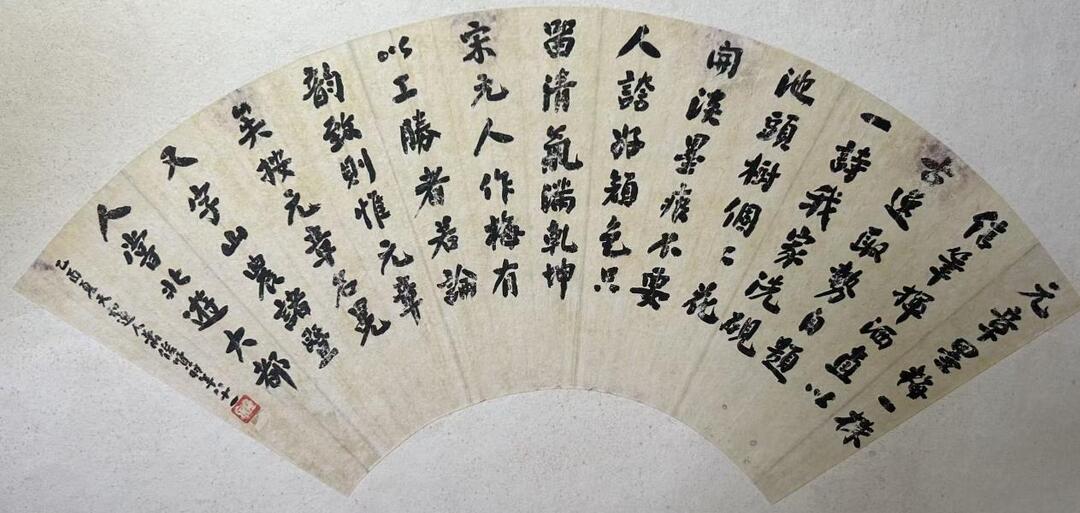 元章墨梅一株
信筆揮洒直以
古逸取勢自題
一詩我家洗硯
池頭樹個〻花
開淡墨痕不要
人誇好顏色只
留清氣滿乾坤
宋元人作梅有
以工勝者若論
韵致則惟元章
矣按元章名冕
又字山農諸暨
人嘗北遊大都
乙酉夏天道人年八十一